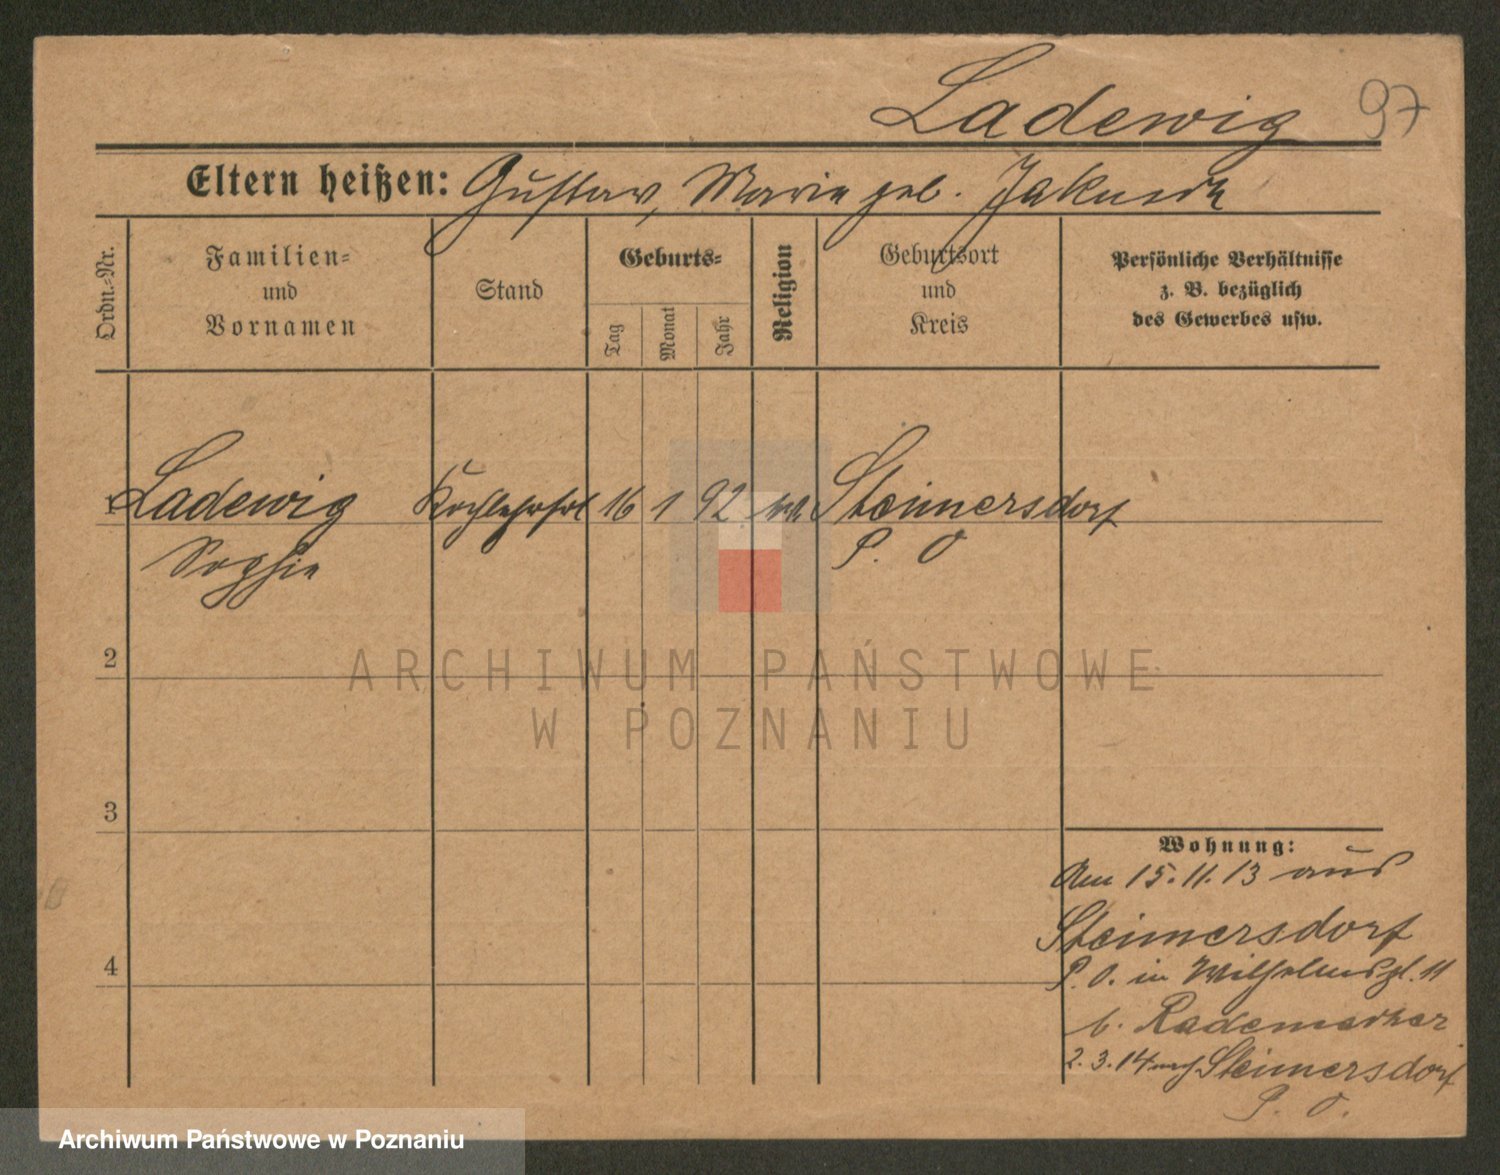 Ladewig 97
Eltern heißen: Gustav, Marie geb.
Ordn.=Nr.
Familien=
und
Vornamen
Stand
Geburts=
Tag
Monat
Jahr
Religion
Geburtsort
und
Kreis
Persönliche Verhältnisse
z. B. bezüglich
des Gewerbes usw.
1 Ladewig 16 1 92 Steimersdorf
Sophie P. O
2
3
4
Wohnung:
Am 15. 11. 13 aus
Steimersdorf
P. O. in Wilhelmspl. 11
b. Rademacher
2. 3. 14 nach Steimersdorf
P. O.
ARCHIWUM PAŃSTWOWE
W POZNANIU
Archiwum Państwowe w Poznaniu